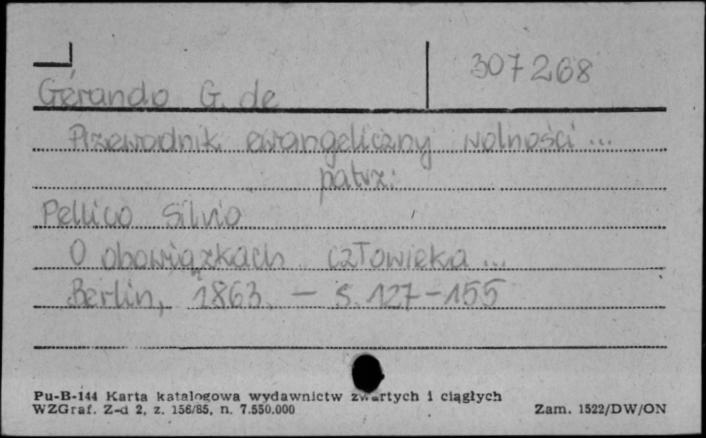 307268
Gérando G. de
Przewodnik ewangeliczny wolności ...
patrz:
Pellico Silvio
O obowiązkach człowieka ...
Berlin, 1863. — S. 127-155
Pu-B-144 Karta katalogowa wydawnictw zwartych i ciągłych
WZGraf. Z-d 2, z. 156/85, n. 7.550.000
Zam. 1522/DW/ON